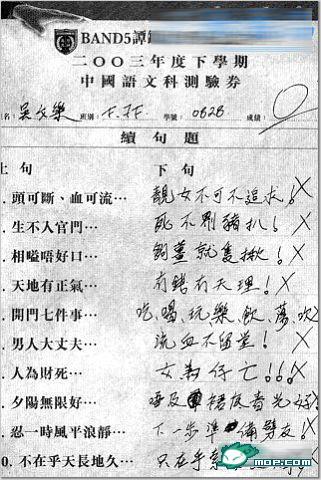 BAND5譚
二○○三年度下學期
中國語文科測驗券
姓名：吳文樂 班別：F.3F 學號：0626 成績：0
續句題
上句 下句
. 頭可斷、血可流… 靚女不可不追求！X
. 生不入官門… 死不劏豬扒！X
. 相嗌唔好口… 鉀薑就隻揪！X
. 天地有正氣… 有錢有天理！X
. 開門七件事… 吃、喝、玩、樂、飲、蕩、吹
. 男人大丈夫… 流血不留堂！X
. 人為財死… 女為仔亡！！！X
. 夕陽無限好… 唔及 裙底春光好
. 忍一時風平浪靜… 下一步準備劈友！X
0. 不在乎天長地久… 只在乎
mop.com